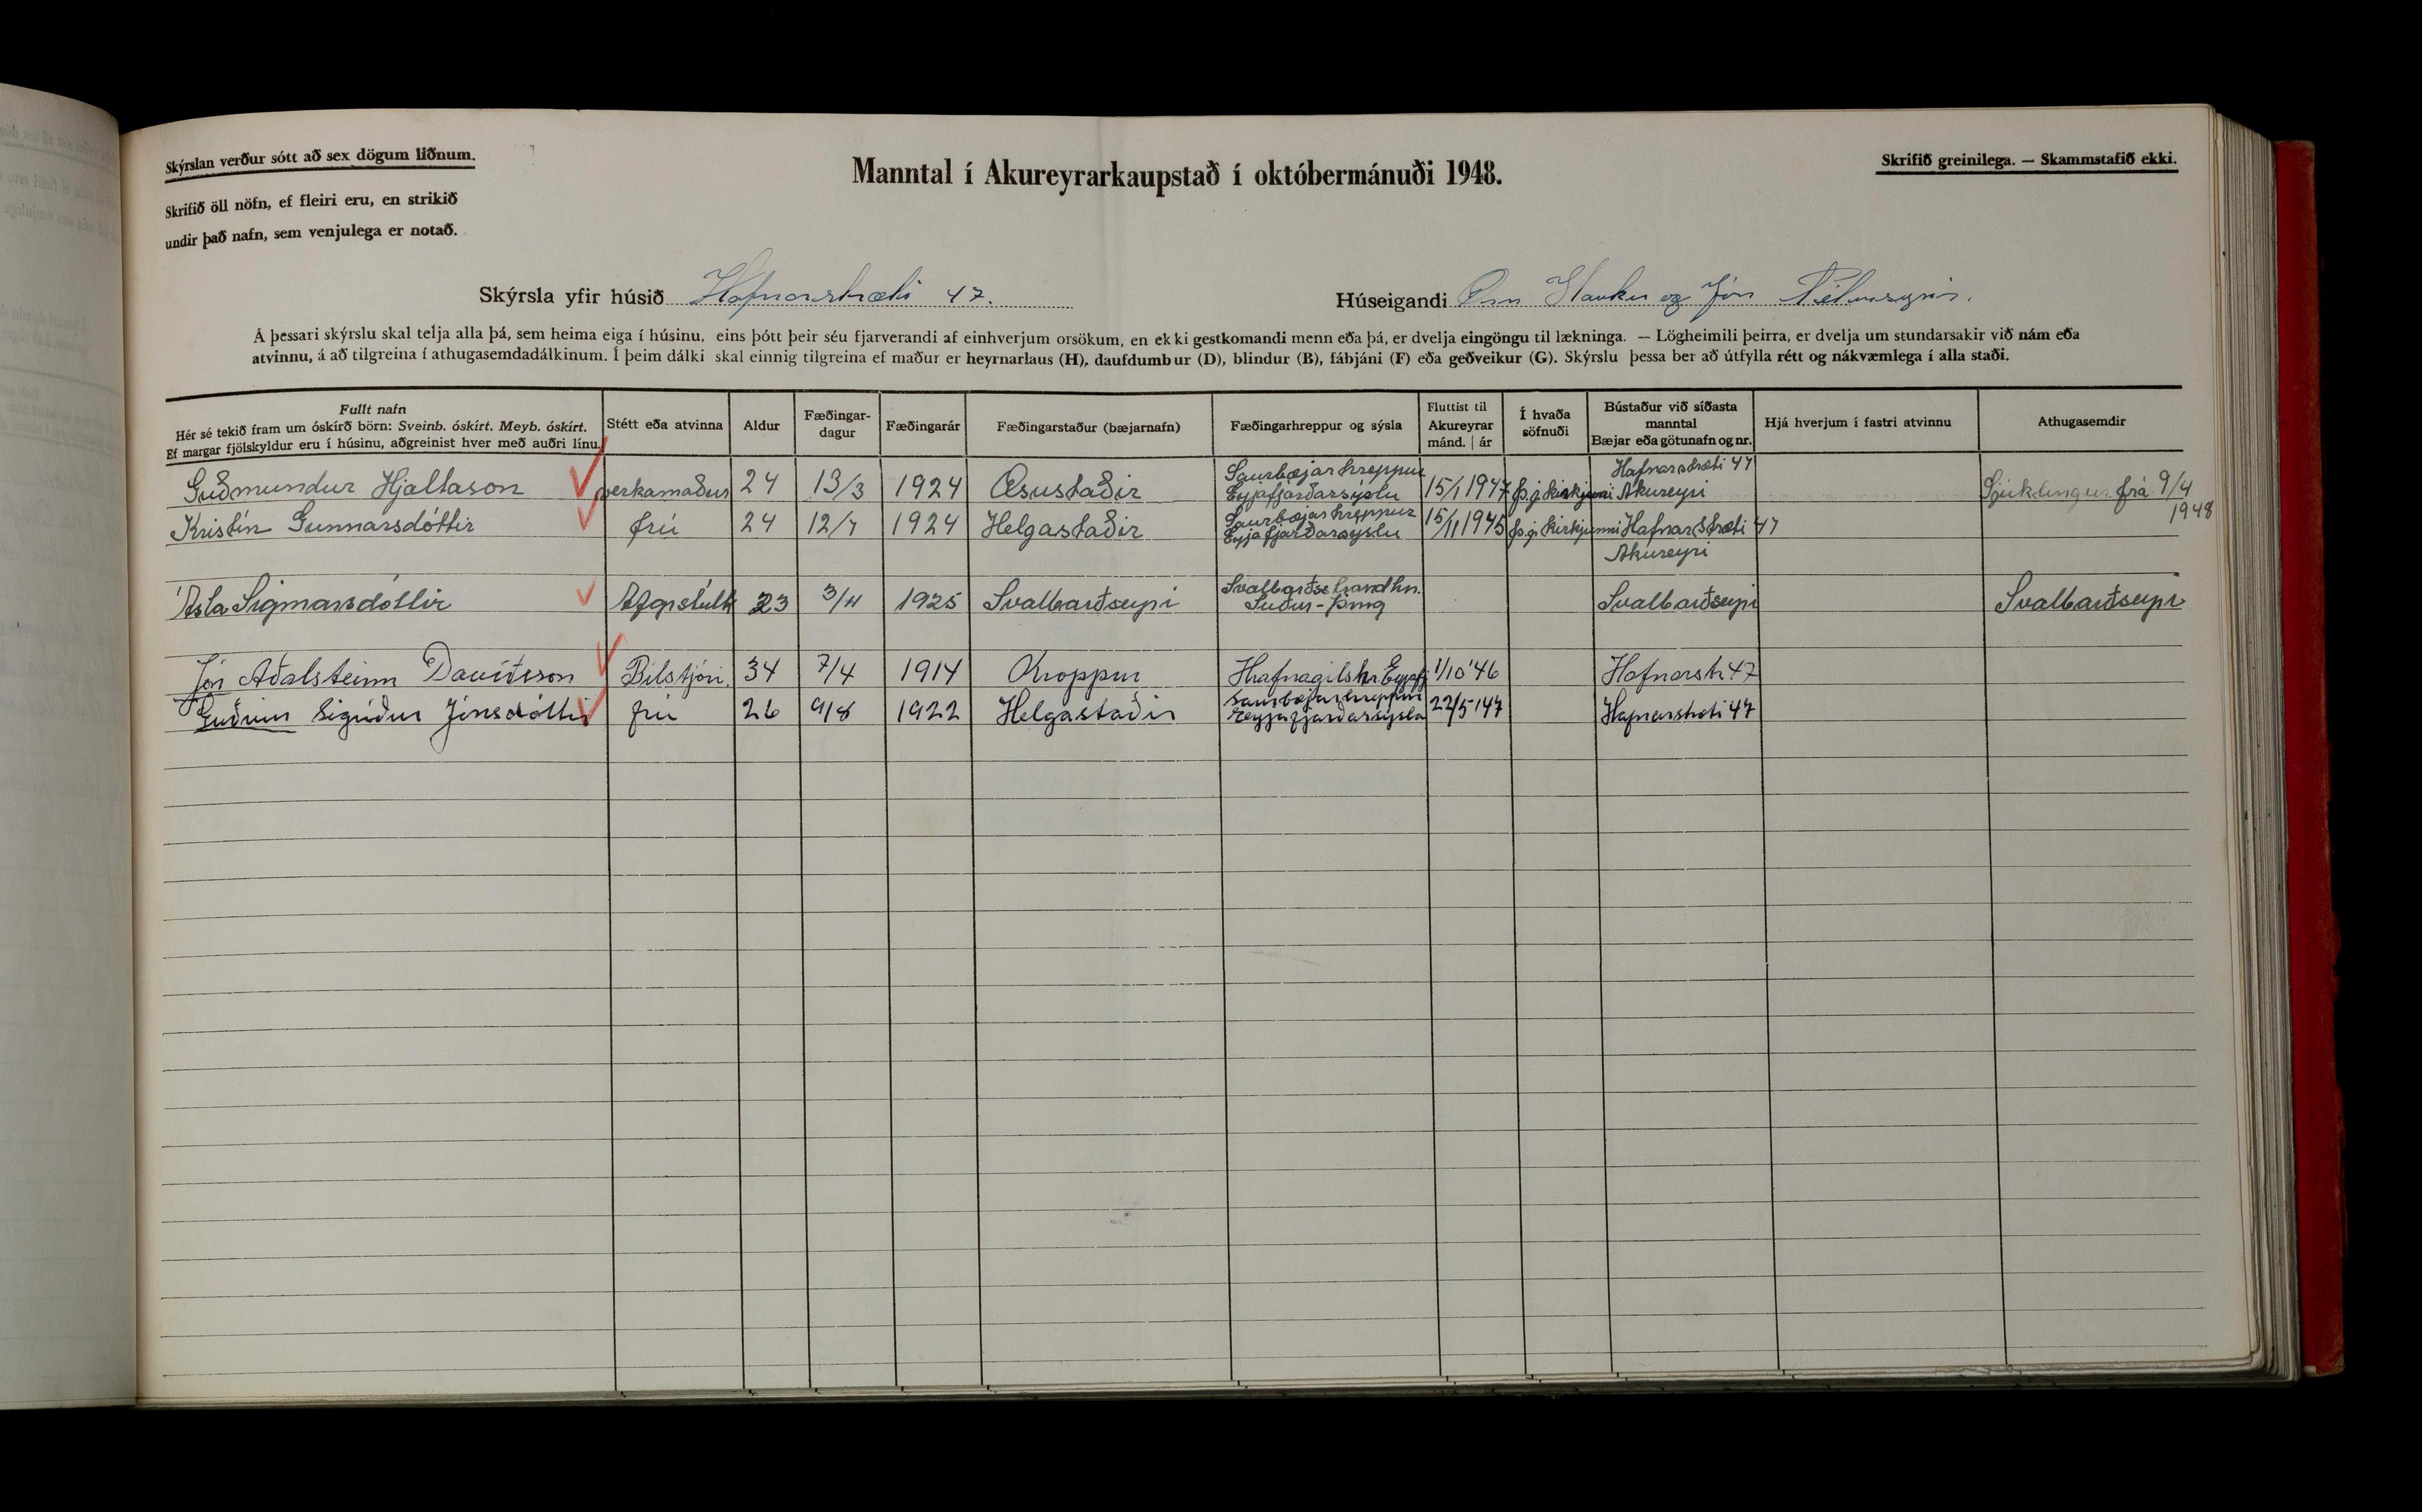 Skýrslan verður sótt að sex dögum liðnum.
Skrifið öll nöfn, ef fleiri eru, en strikið
undir það nafn, sem venjulega er notað.
Manntal í Akureyrarkaupstað í októbermánuði 1948.
Skrifið greinilega. — Skammstafið ekki.
Skýrsla yfir húsið Hafnarstræti 47.
Húseigandi Örn Haukur og Jón Péturssynir.
Á þessari skýrslu skal telja alla þá, sem heima eiga í húsinu, eins þótt þeir séu fjarverandi af einhverjum orsökum, en ekki gestkomandi menn eða þá, er dvelja eingöngu til lækninga. — Lögheimili þeirra, er dvelja um stundarsakir við nám eða
atvinnu, á að tilgreina í athugasemdadálkinum. Í þeim dálki skal einnig tilgreina ef maður er heyrnarlaus (H), daufdumbur (D), blindur (B), fábjáni (F) eða geðveikur (G). Skýrslu þessa ber að útfylla rétt og nákvæmlega í alla staði.
Fullt nafn
Hér sé tekið fram um óskírð börn: Sveinb. óskírt. Meyb. óskírt.
Ef margar fjölskyldur eru í húsinu, aðgreinist hver með auðri línu.
Stétt eða atvinna
Aldur
Fæðingar-
dagur
Fæðingarár
Fæðingarstaður (bæjarnafn)
Fæðingarhreppur og sýsla
Fluttist til
Akureyrar
mánd. | ár
Í hvaða
söfnuði
Bústaður við síðasta
manntal
Bæjar eða götunafn og nr.
Hjá hverjum í fastri atvinnu
Athugasemdir
Guðmundur Hjaltason verkamaður 24 13/3 1924 Æsustaðir
Saurbæjarhreppur
Eyjafjarðarsýslu
15/1 1947 þ.j. kirkjunni
Hafnarstræti 47
Akureyri
Sjúklingur frá 9/4
1948
Kristín Gunnarsdóttir frú 24 12/7 1924 Helgastaðir
Saurbæjarhreppur
Eyjafjarðarsýslu
15/11 1945 þ.j. kirkjunni
Hafnarstræti 47
Akureyri
Ásla Sigmarsdóttir Afgrstúlk 23 3/11 1925 Svalbarðseyri
Svalbarðsstrandhr.
Suður-Þing
Svalbarðseyri
Svalbarðseyri
Jón Aðalsteinn Davíðsson Bílstjóri. 34 7/4 1914 Kroppur Hrafnagilshr. Eyjafj. 1/10 '46 Hafnarstr 47
Guðrún Sigríður Jónsdóttir frú 26 9/8 1922 Helgastaðir
Saurbæjarhreppur
Eyjafjarðarsýsla
22/5 '47 Hafnarstræti 47